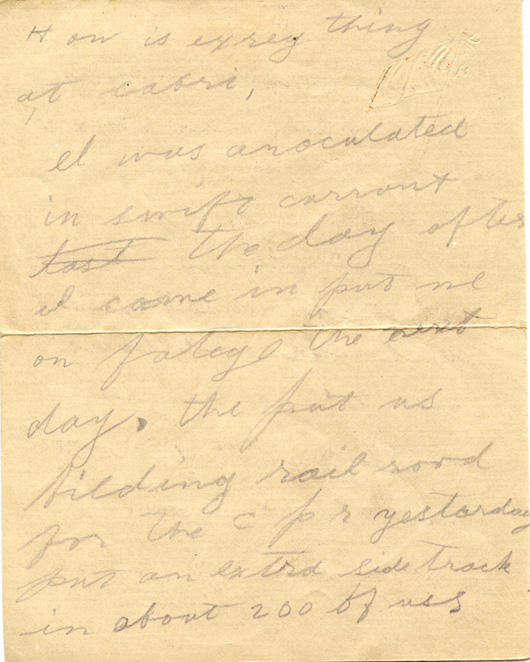 How is exrey thing
at cabri,
I was anoculated
in swift currant
last the day after
I came in put me
on fateg the next
day, the put us
bilding rail rood
for the c p r yestarday
put an extra side track
in about 200 of uss